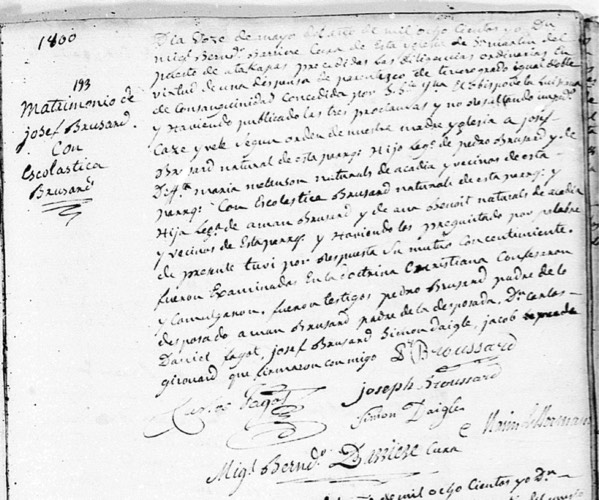 1800
193
Matrimonio de
Josef Brusard
Con
Escolastica
Brusard
Dia Doze de mayo del año de mil ocho cientos yo Dn
Migl Bernd. Barriere Cura de esta yglesia de Sn martin del
puesto de atakapas precedidas las diligencias ordinarias en
virtud de una dispensa de parentezco de tercer grado igual doble
de Consanguinidad Concedida por S. S. Yllma El Obispo de la luisiana
y Haviendo publicado las tres proclamas y no resultando impedto
Caze y vele segun orden de nuestra madre yglesia a Josef
Brusard natural de esta parrqa Hijo legmo de pedro Brusard y de
Difta maria melenson naturals de acadia y vecinos de esta
parrqa Con Escolastica Brusard natural de esta parrqa y
Hija legma de aman Brusard y de ana Benoit naturals de acadia
y vecinos de Esta parrqa y Haviendoles preguntado por palabra
de presente tuvi por Respuesta Su mutuo Consentimiento.
fueron Examinadas En la doctrina Christiana Confesaron
y Comulgaron. fueron testigos pedro Brusard padre de lo
desposado aman Brusard padre de la desposada. Dn Carlos
Daniel fagot, Josef Brusard Simon daigle, jacob
girouard que firmaron conmigo
Pr Broussard
Carlos Fagot
Joseph Broussard
Simon Daigle
Migl Bernd. Barriere Cura
de mil ocho Cientos yo Dn